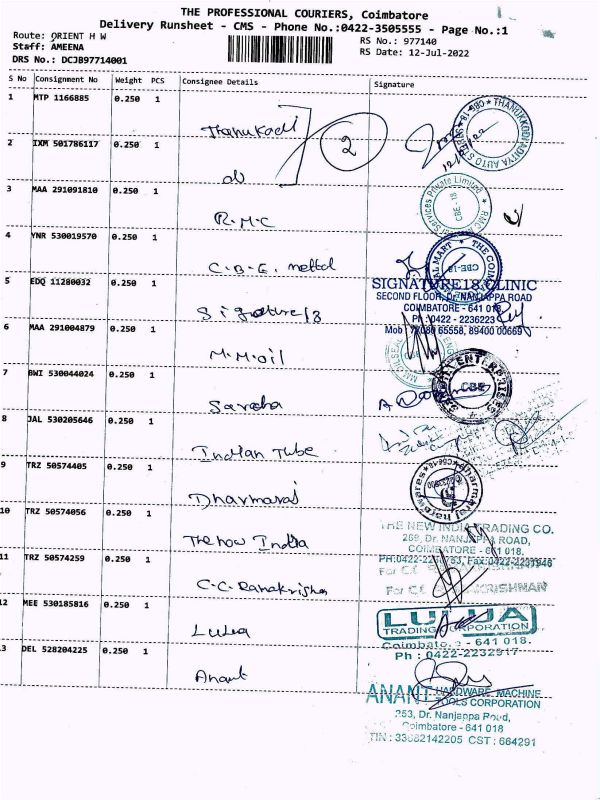 THE PROFESSIONAL COURIERS, Coimbatore
Delivery Runsheet - CMS - Phone No.:0422-3505555 - Page No.:1
Route: ORIENT H W
RS No.: 977140
Staff: AMEENA
RS Date: 12-Jul-2022
DRS No.: DCJB97714001
S No Consignment No Weight PCS Consignee Details Signature
1 MTP 1166885 0.250 1 Thanukodi
2
THANUKKODIADITYA AUTO STEERS CBE-18
2 IXM 501786117 0.250 1 do
3 MAA 291091810 0.250 1 R.M.C
Services Private Limited CBE-18
4 YNR 530019570 0.250 1 C.B.E. mettal
MART THE COIM CBE-18
SIGNATURE18 CLINIC
5 EDQ 11280032 0.250 1 Signature 18
SECOND FLOOR, Dr. NANJAPPA ROAD
COIMBATORE - 641 018
PH: 0422 - 2236223
Mob 65558, 89400 00669
6 MAA 291004879 0.250 1 M.M.oil
7 BWI 530044024 0.250 1
ENTERPRISES CBE
8 JAL 530205646 0.250 1 Indian Tube
9 TRZ 50574405 0.250 1 Dharmaraj
dharmaraj
10 TRZ 50574056 0.250 1 The new India
THE NEW INDIA TRADING CO.
269, Dr. NANJAPPA ROAD,
COIMBATORE - 641 018.
11 TRZ 50574259 0.250 1 C.C. Ramakrishna
PH:0422-22 Fax:0422-2237946
For C.C. RAMAKRISHNAN
12 MEE 530185816 0.250 1 Lulua
LULUA
TRADING CORPORATION
Coimbatore - 641 018.
Ph : 0422-2232917
13 DEL 528204225 0.250 1 Anant
ANANT HARDWARE MACHINE
TOOLS CORPORATION
253, Dr. Nanjappa Road,
Coimbatore - 641 018
TIN : 33082142205 CST : 664291